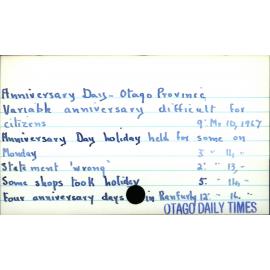 Anniversary Day - Otago Province
Variable anniversary difficult for
citizens 9: Mr 10, 1967
Anniversary Day holiday held for some on
Monday 3: " 14, -
Statement 'wrong' 2: " 13, -
Some shops took holiday 5: " 14, -
Four anniversary days in Ranfurly 12: " 16. -
OTAGO DAILY TIMES